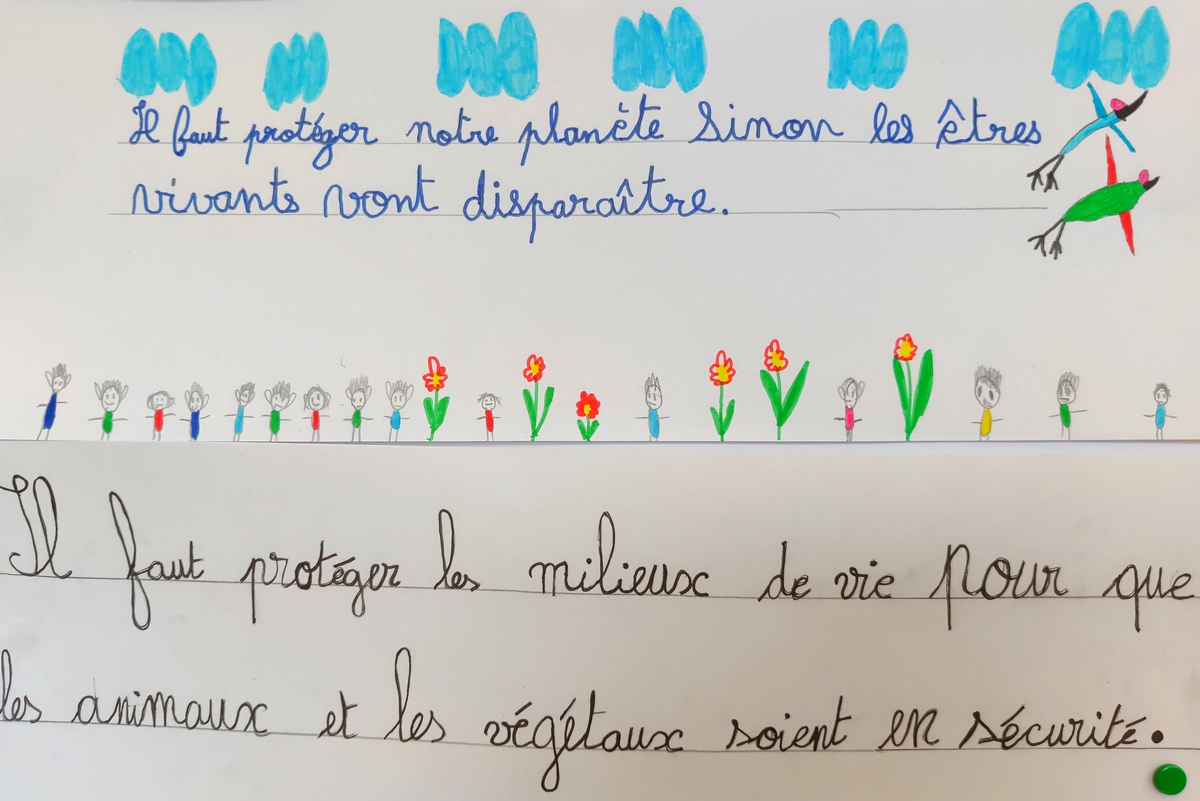 Il faut protéger notre planète sinon les êtres
vivants vont disparaître.
Il faut protéger les milieux de vie pour que
les animaux et les végétaux soient en sécurité.